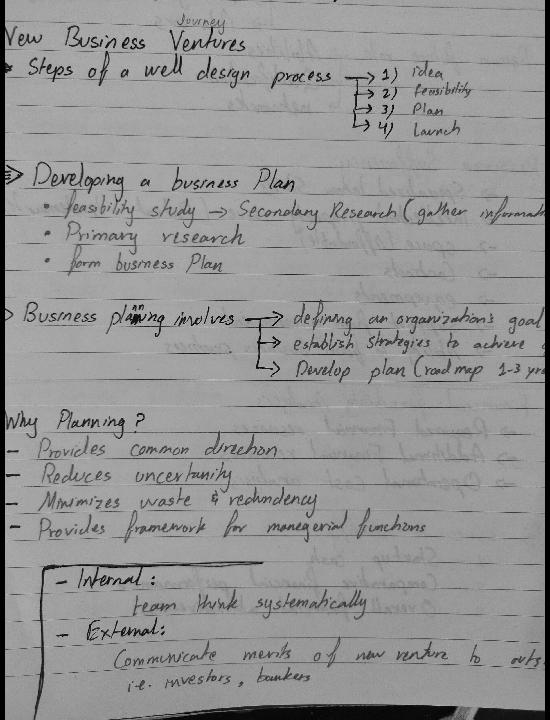 Journey
New Business Ventures
Steps of a well design process → 1) idea
→ 2) feasibility
→ 3) Plan
→ 4) Launch
Developing a business Plan
• feasibility study → Secondary Research ( gather informat
• Primary research
• form business Plan
Business planning involves → defining an organization's goal
→ establish strategies to achieve
→ Develop plan (road map 1-3 yr
Why Planning?
- Provides common direction
- Reduces uncertanity
- Minimizes waste & redundency
- Provides framework for managerial functions
- Internal:
team think systematically
- External:
Communicate merits of new venture to outs
i.e. investors, bankers